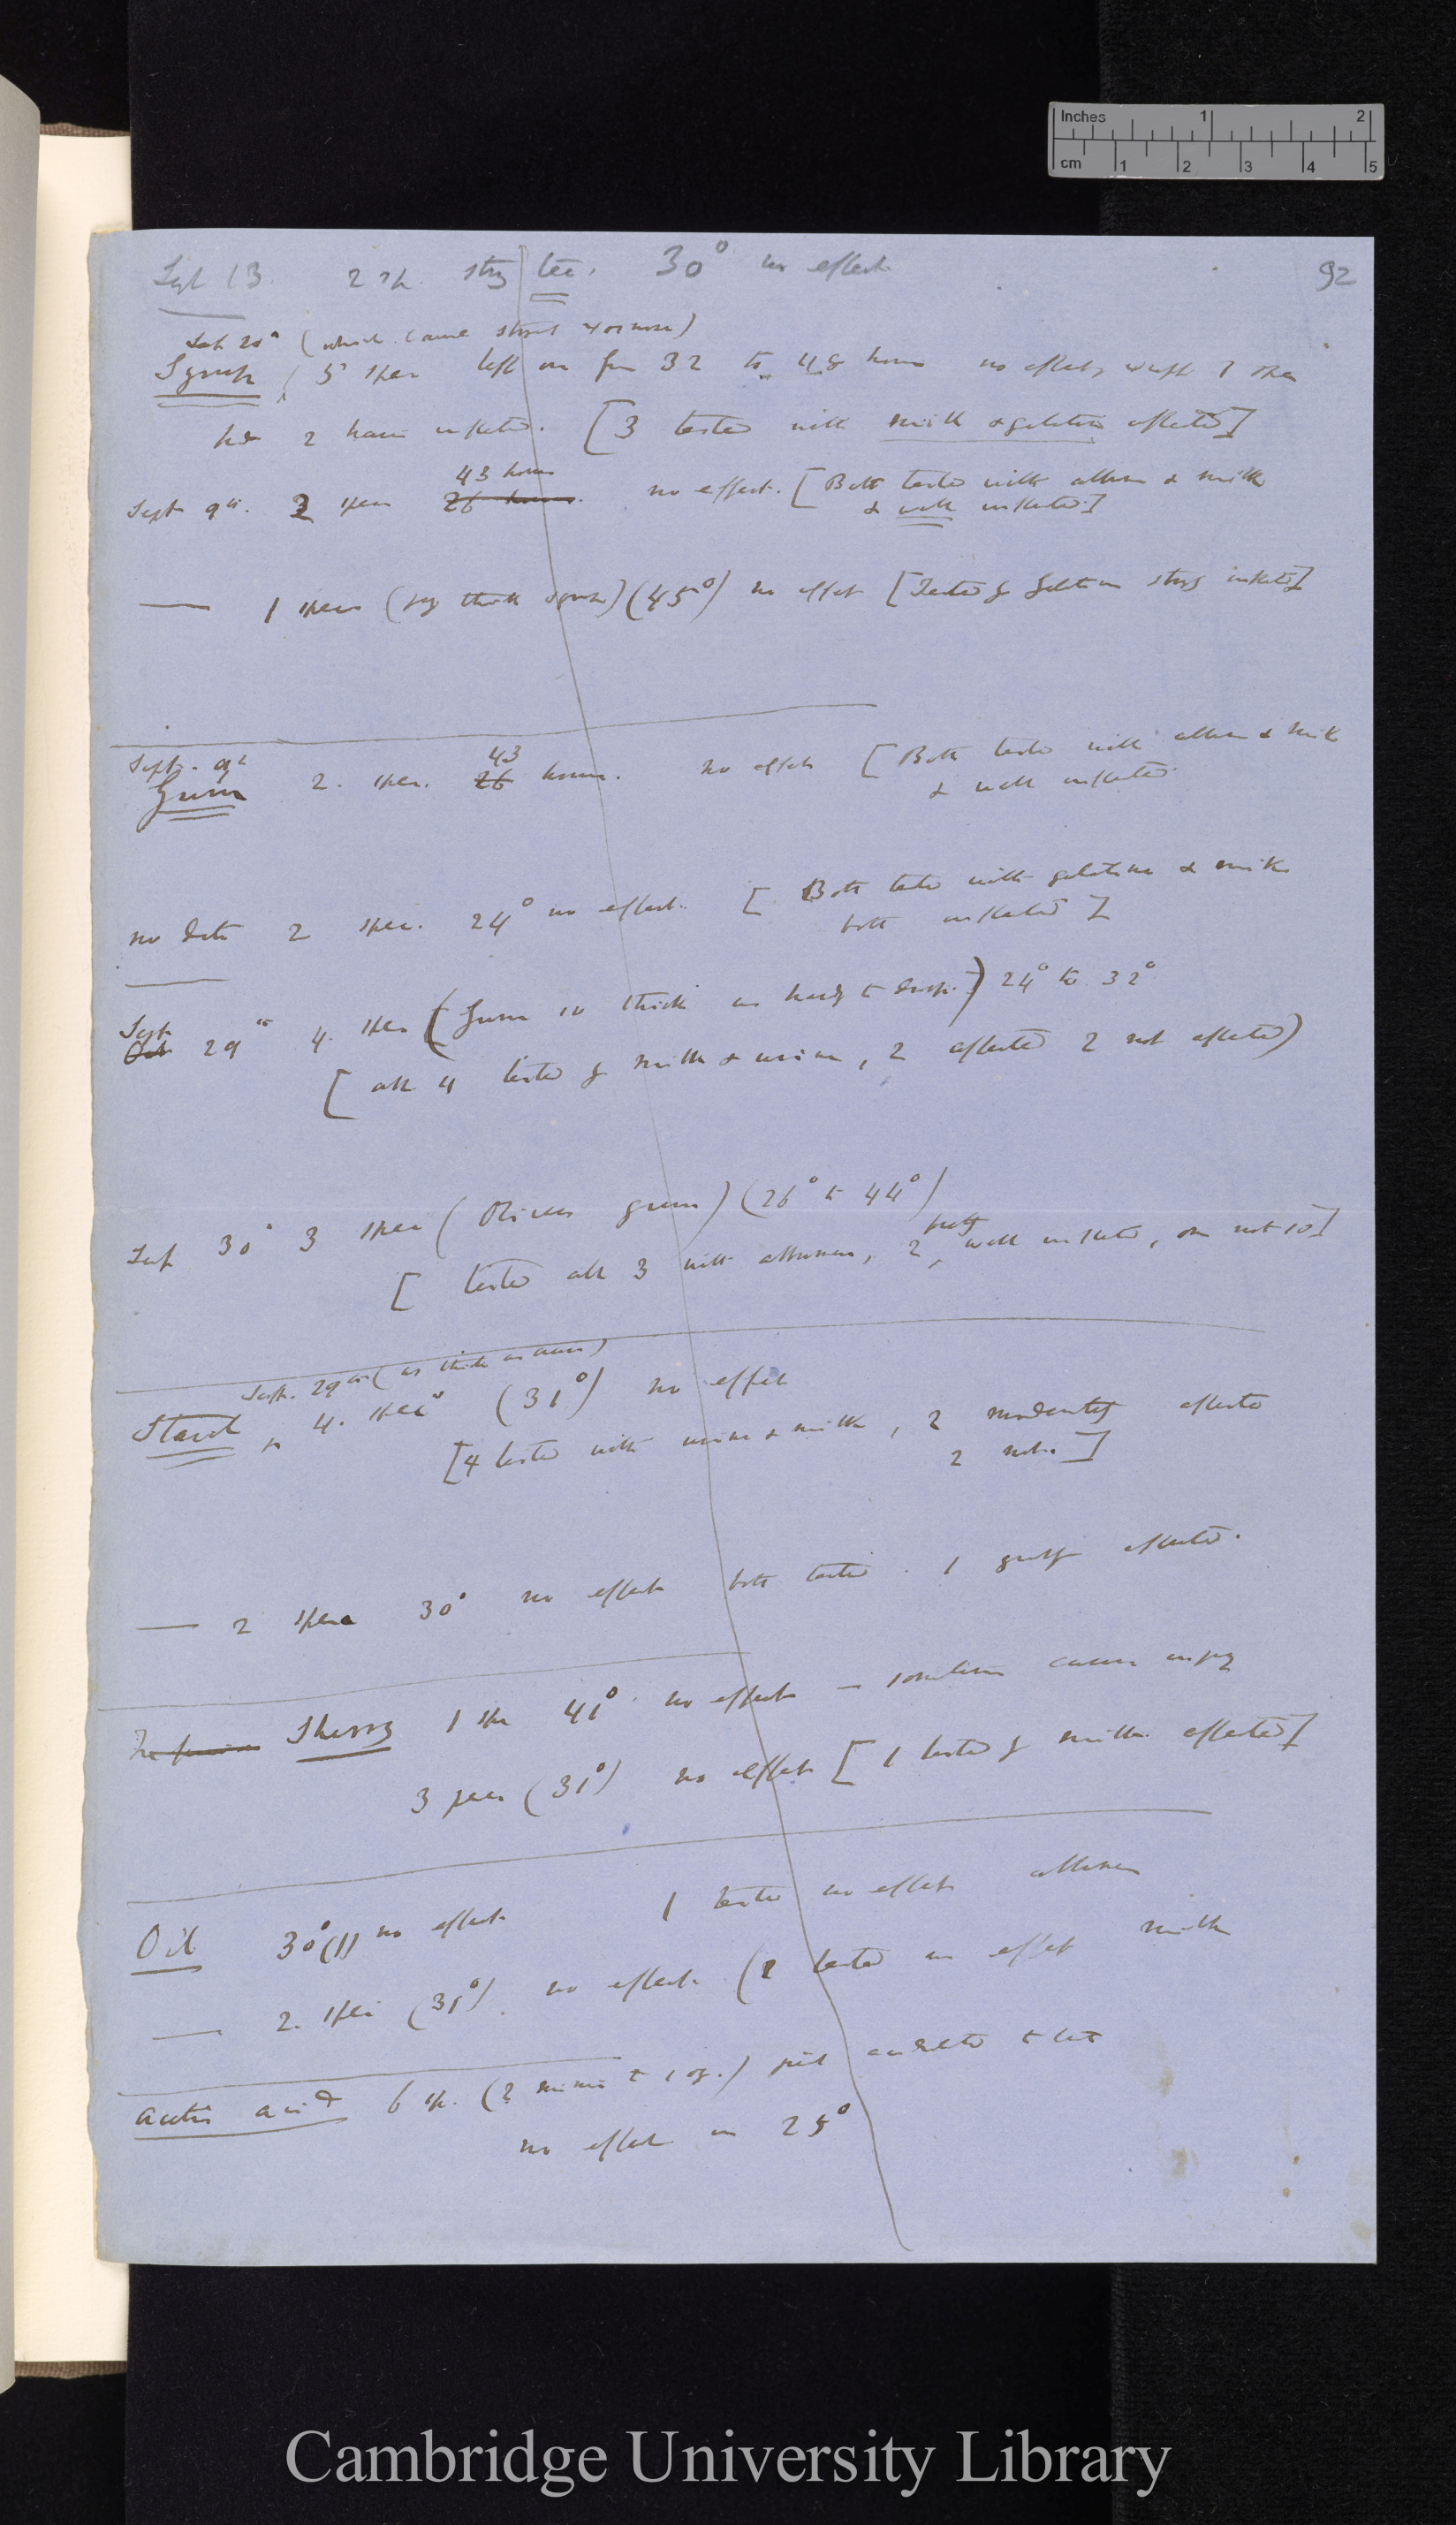 Inches 1 2
cm 1 2 3 4 5
92
Sept 13. 2 sp. strong tea. 30° no effect
Sept 20th (which came strings 4 or more)
Syrup 5 spec left on from 32 to 48 hours no effect, except 1 spec
had 2 hairs inflected. [3 tested with milk & gelatine affected]
43 hours
Sept 9th. 2 spec 26 hours. no effect. [Both tested with album & milk
& well inflected]
— 1 spec (very thick syrup) (45°) no effect [Tested by Gelatine strongly inflected]
Sept. 9th 43
Gum 2. spec. 26 hours. no effect [Both tested with album & milk
& well inflected
no date 2 spec. 24° no effect. [Both tested with gelatine & milk
both inflected]
Sept
Oct 29th 4. spec (Gum so thick as hardly to drop.) 24° to 32°
[all 4 tested by milk & urine, 2 affected 2 not affected)
Sept 30° 3 spec (Olivers gum) (26° to 44°)
pretty
[tested all 3 with albumen, 2 well inflected, one not so]
Sept. 29th (as thick as cream)
Starch 4. spec (31°) no effect
[4 tested with urine & milk, 2 moderately affected
2 not.]
— 2 spec 30° no effect both tested. 1 greatly affected.
Sherry 1 spec 41° no effect — sometimes causes injury
3 spec (31°) no effect [1 tested by milk affected]
Oil 30° (1) no effect 1 tested no effect albumen
— 2. spec (31°). no effect (2 tested no effect milk
acetic acid 6 sp. (2 minims to 1 oz.) just
no effect in 25°
Cambridge University Library